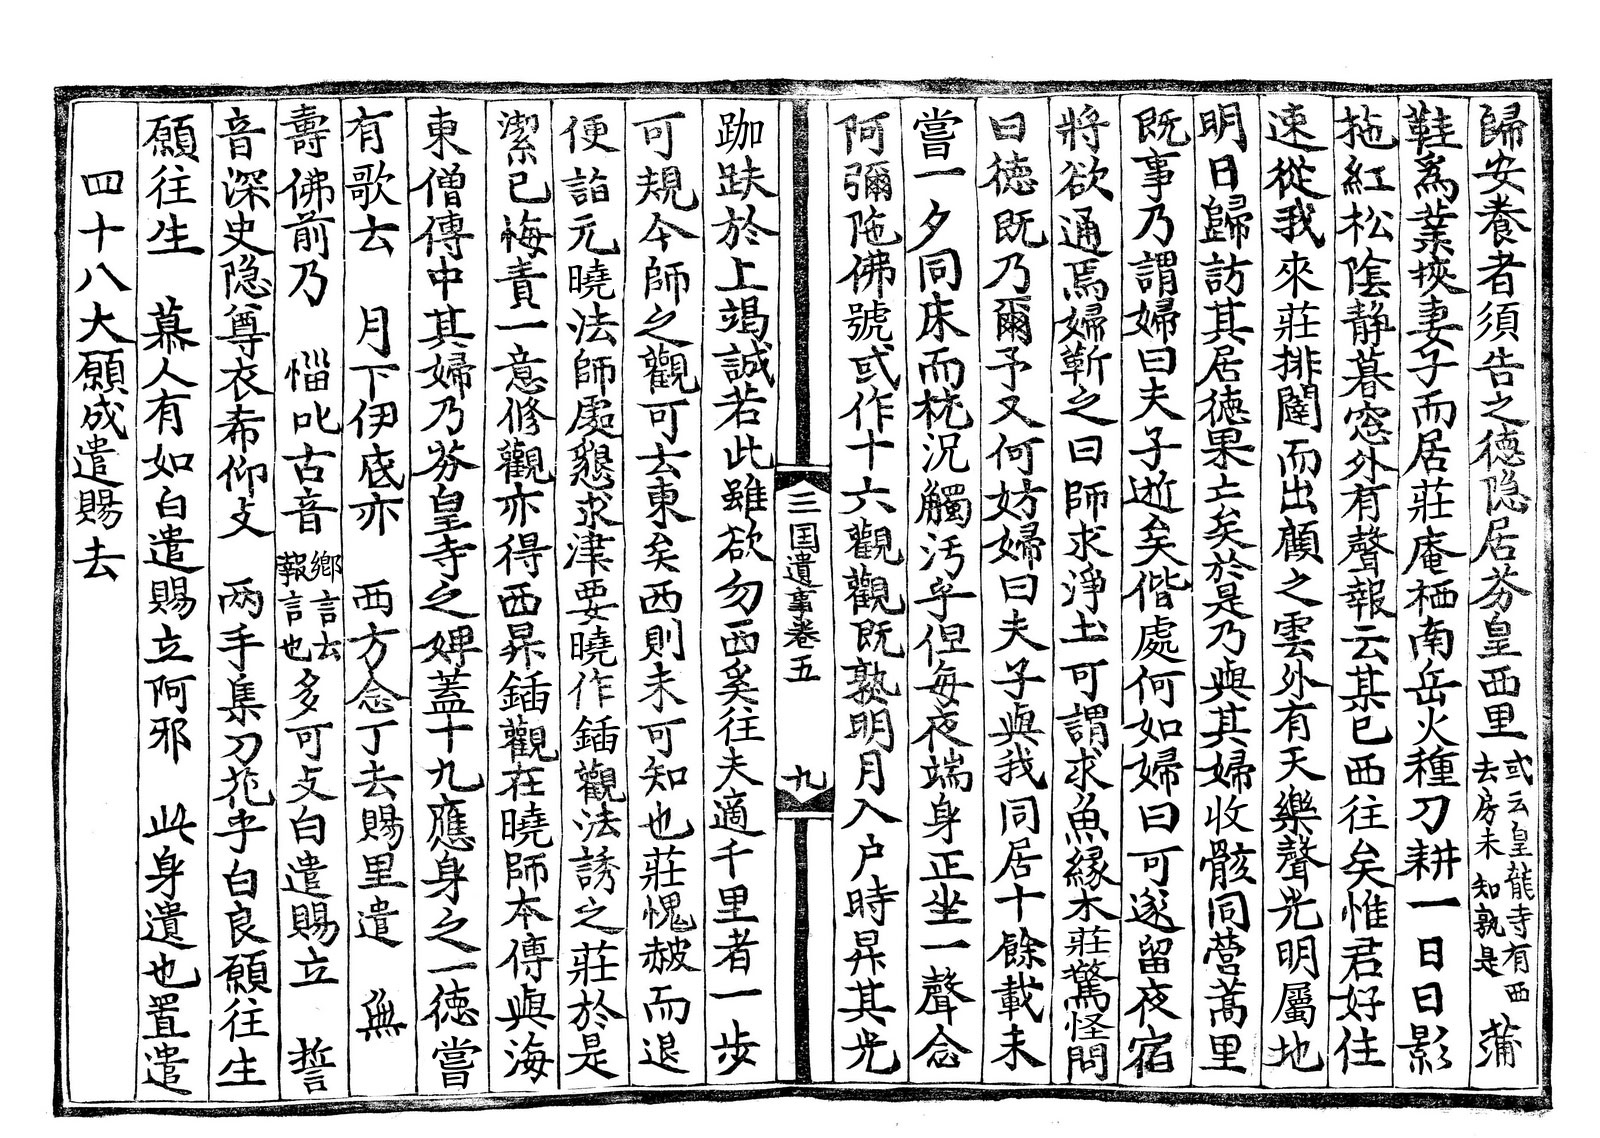 歸安養者須告之德隐居芬皇西里或云皇龍寺有西去房未知孰是蒲
鞋爲業挾妻子而居莊庵栖南岳火種刀耕一日日影
拖紅松陰静暮窓外有聲報云某已西往矣惟君好住
速從我來莊排闥而出顧之雲外有天樂聲光明屬地
明日歸訪其居德果亡矣於是乃與其婦收骸同营蒿里
既事乃謂婦曰夫子逝矣偕處何如婦曰可遂留夜宿
將欲通焉婦靳之曰師求淨土可謂求魚緣木莊驚怪問
曰德既乃爾予又何妨婦曰夫子與我同居十餘載未
嘗一夕同床而枕况觸汚乎但每夜端身正坐一聲念
阿彌陁佛號或作十六觀觀既熟明月入户時昇其光
三国遺事卷五　九
跏趺於上竭誠若此雖欲勿西奚往夫適千里者一步
可規今師之觀可云東矣西則未可知也莊愧赧而退
便詣元曉法師處懇求津要曉作鍤觀法誘之莊於是
潔已悔責一意修觀亦得西昇鍤觀在曉師本傳與海
東僧傳中其婦乃芬皇寺之婢蓋十九應身之一德嘗
有歌云　月下伊底亦　西方念丁去賜里遣　無
壽佛前乃　惱叱古音鄉言云報言也多可支白遣賜立　誓
音深史隐尊衣希仰支　两手集刀花乎白良願往生
願往生　慕人有如白遣賜立阿邪　此身遺也置遣
四十八大願成遣賜去